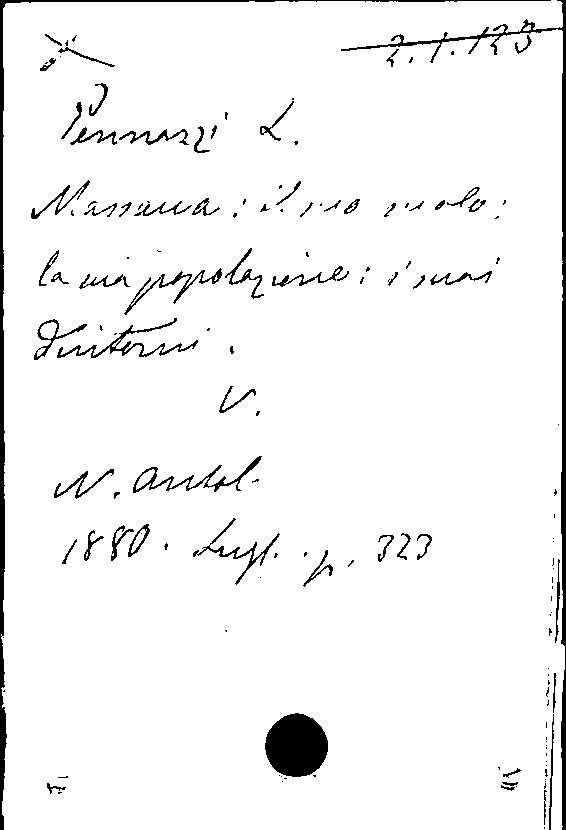 2.1.123
Pennazzi L.
Massaua: il suo molo;
la sua popolazione; i suoi
dintorni.
V.
N. Antol.
1880. Lugl. p. 323